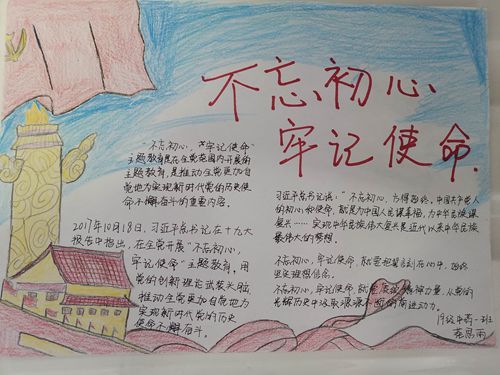 不忘初心
牢记使命.
"不忘初心,牢记使命"
主题教育是在全党范围内开展的
主题教育,是推动全党更加自
觉地为实现新时代党的历史使
命不懈奋斗的重要内容。
2017年10月18日,习近平总书记在十九大
报告中指出,在全党开展"不忘初心,
牢记使命"主题教育,用
党的创新理论武装头脑
推动全党更加自觉地为
实现新时代党的历史
使命不懈奋斗。
习近平总书记说:"不忘初心,方得始终,中国共产党人
的初心和使命,就是为中国人民谋幸福,为中华民族谋
复兴……实现中华民族伟大复兴是近代以来中华民族
最伟大的梦想。
不忘初心,牢记使命,就要把誓言刻在心中,
坚定理想信念。
不忘初心,牢记使命,就
光辉历史中汲取源源不断的前进动力。
19级中药一班